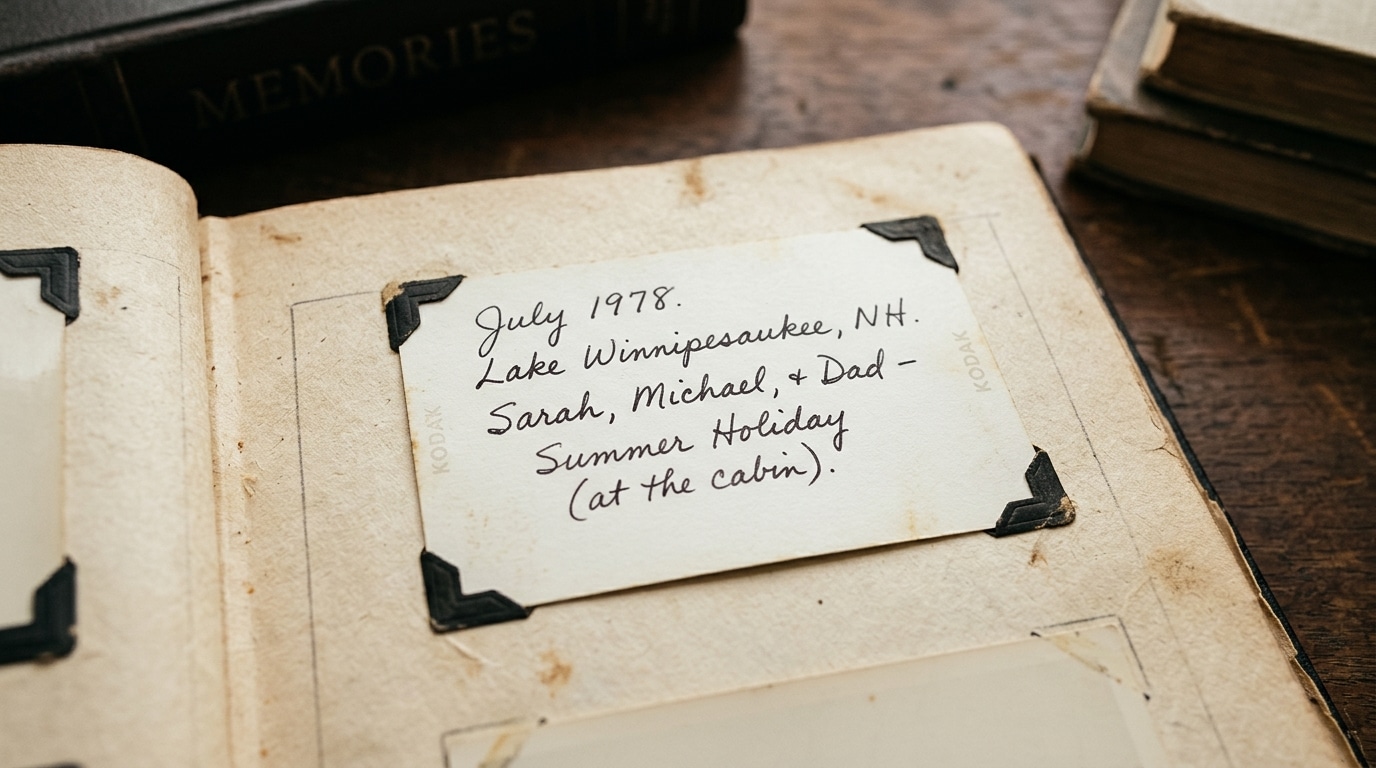 MEMORIES
July 1978.
Lake Winnipesaukee, NH.
Sarah, Michael, + Dad –
Summer Holiday
(at the cabin).
KODAK
KODAK